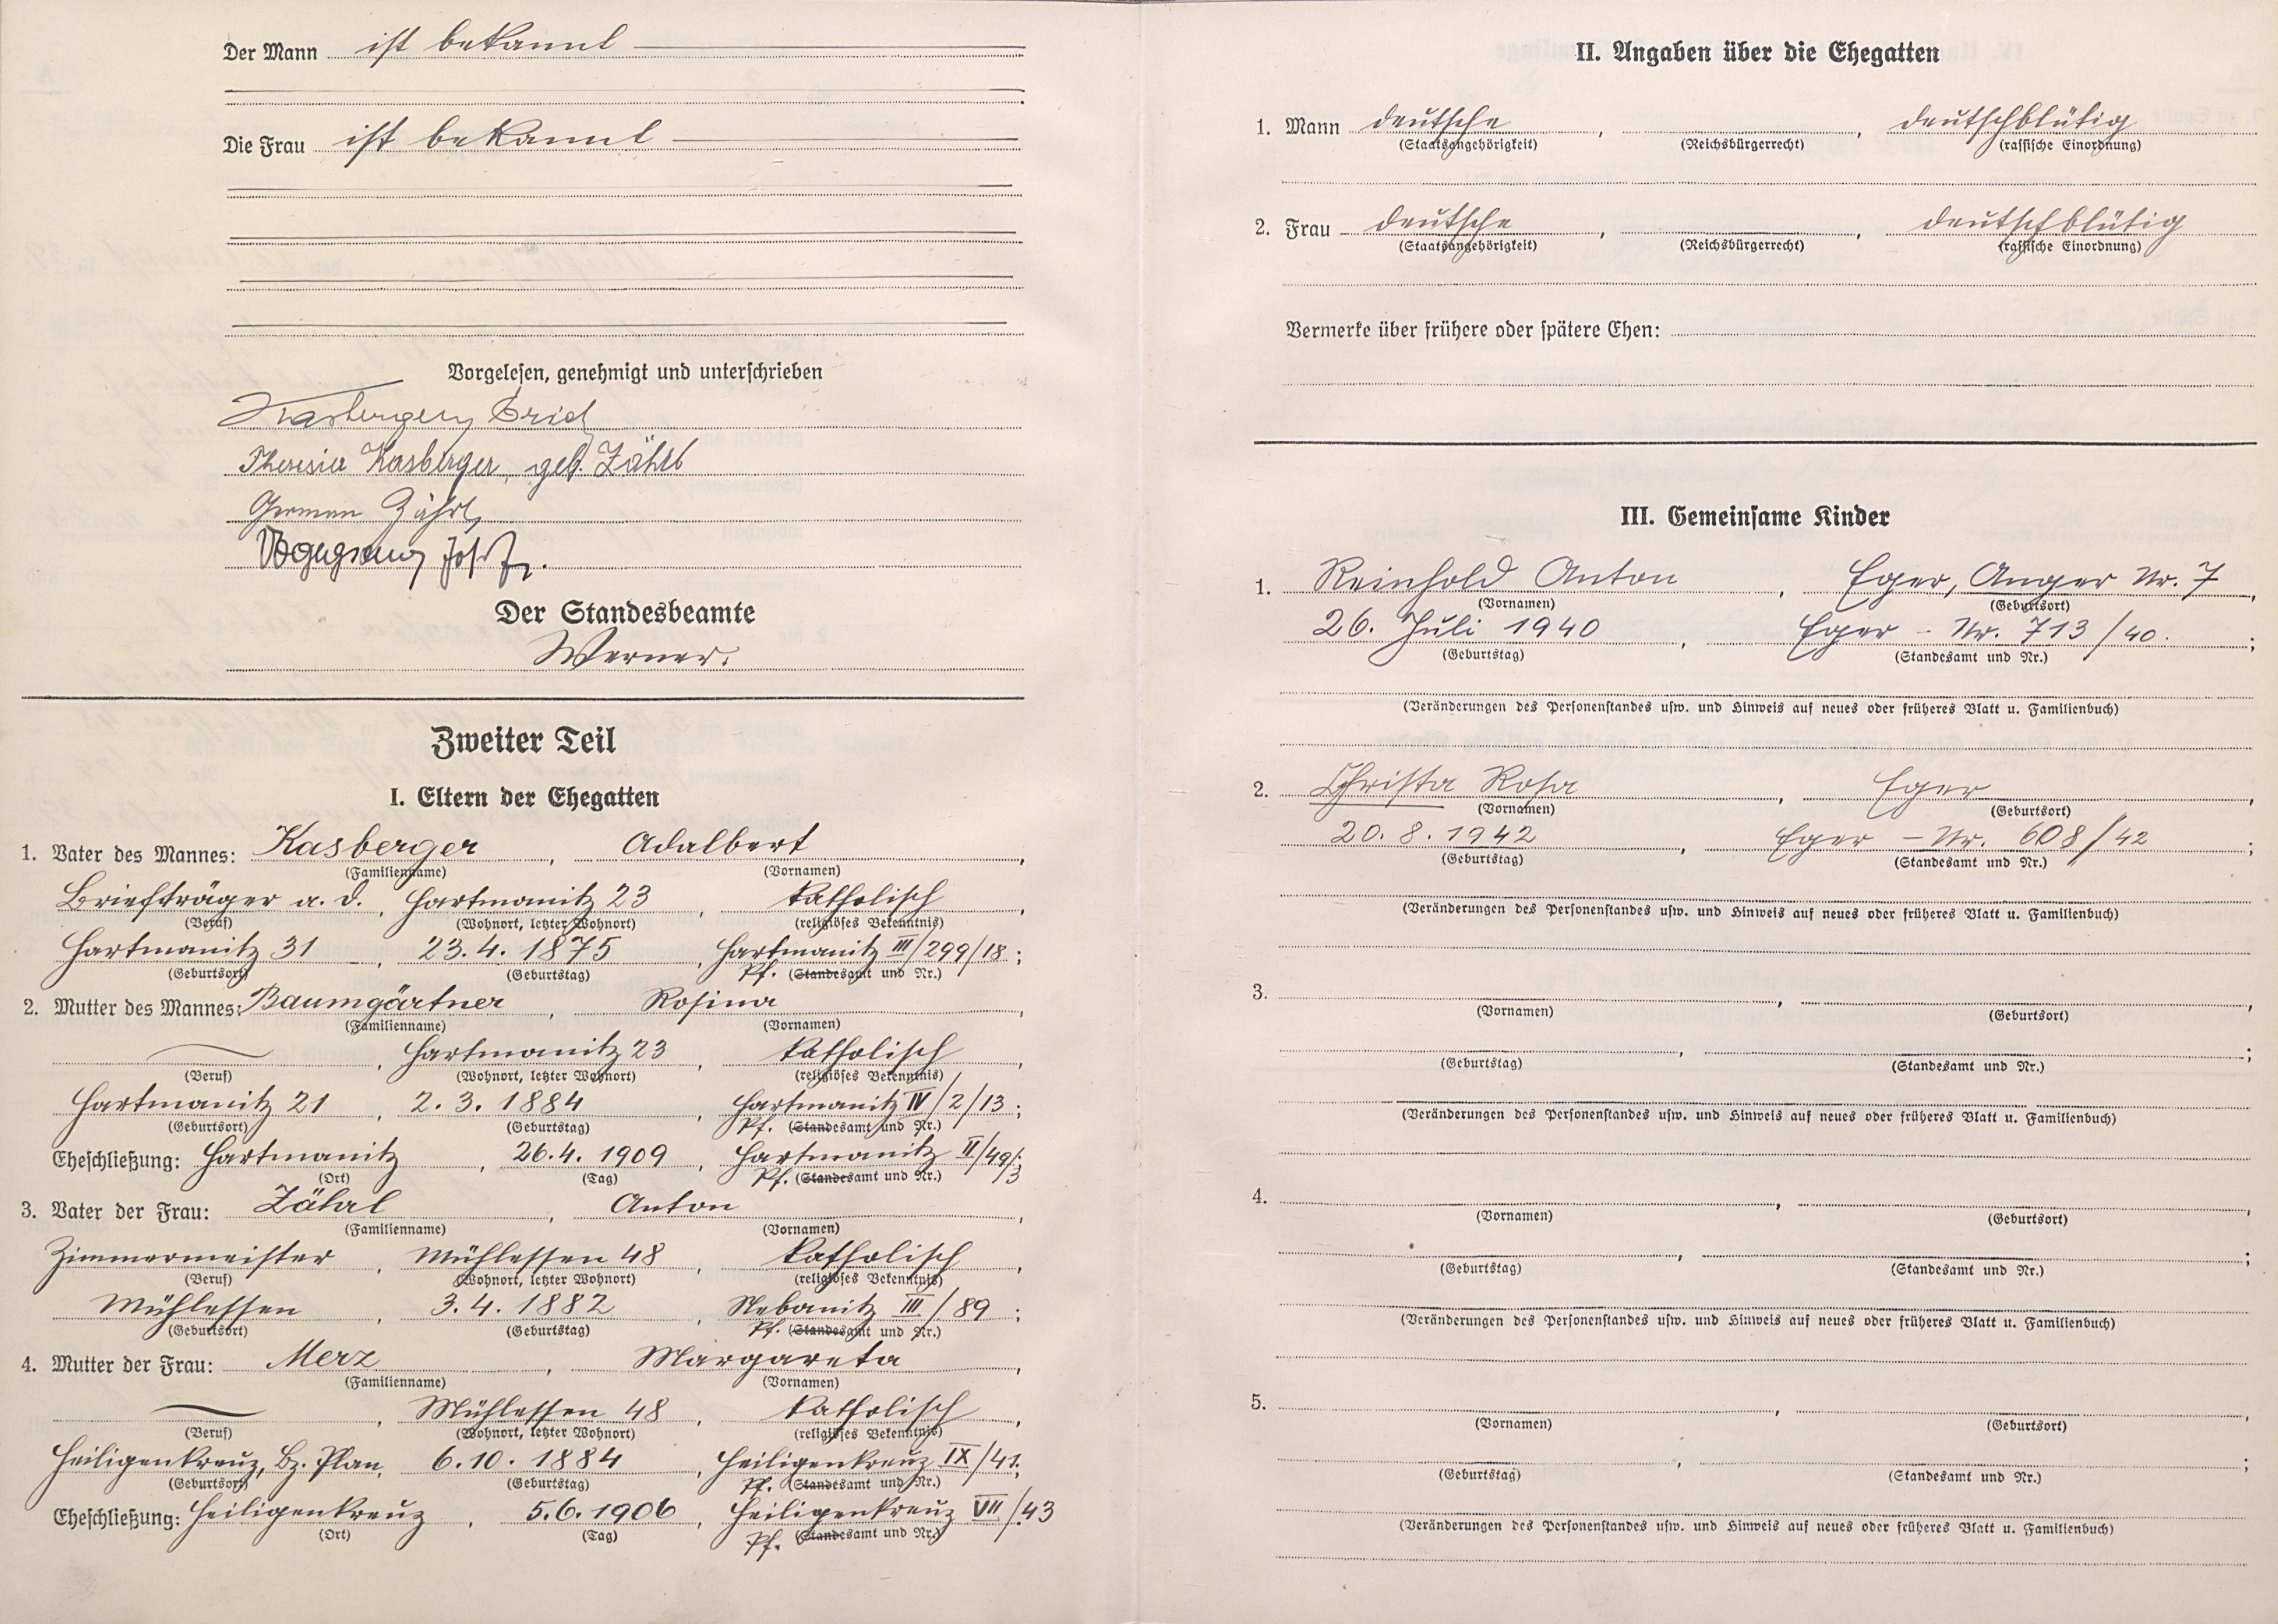 Der Mann ist bekannt
Die Frau ist bekannt
Vorgelesen, genehmigt und unterschrieben
Kasberger Erich
Theresia Kasberger, geb. Zährl
German Zährl
Josef
Der Standesbeamte
Werner.
Zweiter Teil
I. Eltern der Ehegatten
1. Vater des Mannes: Kasberger, Adalbert,
(Familienname) (Vornamen)
Briefträger a. d., Hartmanitz 23, katholisch,
(Beruf) (Wohnort, letzter Wohnort) (religiöses Bekenntnis)
Hartmanitz 31, 23.4.1875, Hartmanitz III/299/18;
(Geburtsort) (Geburtstag) Pf. (Standesamt und Nr.)
2. Mutter des Mannes: Baumgärtner, Rosina,
(Familienname) (Vornamen)
, Hartmanitz 23, katholisch,
(Beruf) (Wohnort, letzter Wohnort) (religiöses Bekenntnis)
Hartmanitz 21, 2.3.1884, Hartmanitz IV/2/13;
(Geburtsort) (Geburtstag) Pf. (Standesamt und Nr.)
Eheschließung: Hartmanitz, 26.4.1909, Hartmanitz II/49/3
(Ort) (Tag) Pf. (Standesamt und Nr.)
3. Vater der Frau: Zährl, Anton,
(Familienname) (Vornamen)
Zimmermeister, Mühlessen 48, katholisch,
(Beruf) (Wohnort, letzter Wohnort) (religiöses Bekenntnis)
Mühlessen, 3.4.1882, Nebanitz III/89;
(Geburtsort) (Geburtstag) Pf. (Standesamt und Nr.)
4. Mutter der Frau: Merz, Margareta,
(Familienname) (Vornamen)
, Mühlessen 48, katholisch,
(Beruf) (Wohnort, letzter Wohnort) (religiöses Bekenntnis)
Heiligenkreuz, Bz. Plan, 6.10.1884, Heiligenkreuz IX/41;
(Geburtsort) (Geburtstag) Pf. (Standesamt und Nr.)
Eheschließung: Heiligenkreuz, 5.6.1906, Heiligenkreuz VII/43
(Ort) (Tag) Pf. (Standesamt und Nr.)
II. Angaben über die Ehegatten
1. Mann deutsche, , deutschblütig
(Staatsangehörigkeit) (Reichsbürgerrecht) (rassische Einordnung)
2. Frau deutsche, , deutschblütig
(Staatsangehörigkeit) (Reichsbürgerrecht) (rassische Einordnung)
Vermerke über frühere oder spätere Ehen:
III. Gemeinsame Kinder
1. Reinhold Anton, Eger, Anger Nr. 7,
(Vornamen) (Geburtsort)
26. Juli 1940, Eger - Nr. 713/40.;
(Geburtstag) (Standesamt und Nr.)
(Veränderungen des Personenstandes usw. und Hinweis auf neues oder früheres Blatt u. Familienbuch)
2. Christa Rosa, Eger,
(Vornamen) (Geburtsort)
20.8.1942, Eger - Nr. 608/42;
(Geburtstag) (Standesamt und Nr.)
(Veränderungen des Personenstandes usw. und Hinweis auf neues oder früheres Blatt u. Familienbuch)
3. , ,
(Vornamen) (Geburtsort)
, ;
(Geburtstag) (Standesamt und Nr.)
(Veränderungen des Personenstandes usw. und Hinweis auf neues oder früheres Blatt u. Familienbuch)
4. , ,
(Vornamen) (Geburtsort)
, ;
(Geburtstag) (Standesamt und Nr.)
(Veränderungen des Personenstandes usw. und Hinweis auf neues oder früheres Blatt u. Familienbuch)
5. , ,
(Vornamen) (Geburtsort)
, ;
(Geburtstag) (Standesamt und Nr.)
(Veränderungen des Personenstandes usw. und Hinweis auf neues oder früheres Blatt u. Familienbuch)